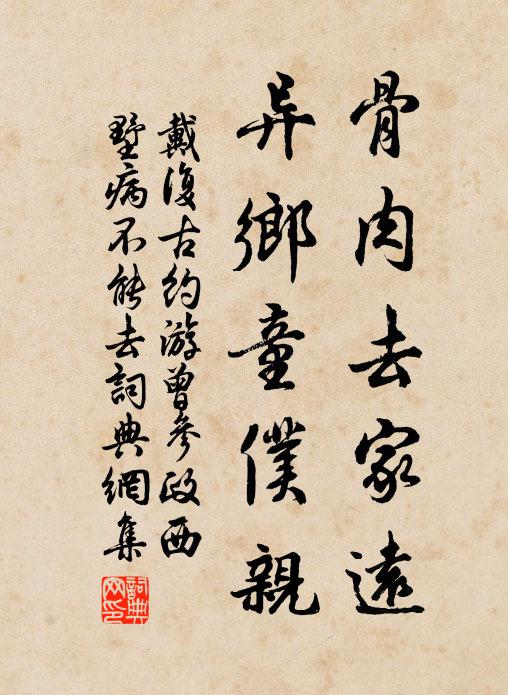 骨肉去家遠
异鄉童僕親
戴復古約游曾參政西
墅病不能去詞典網集
詞典网印